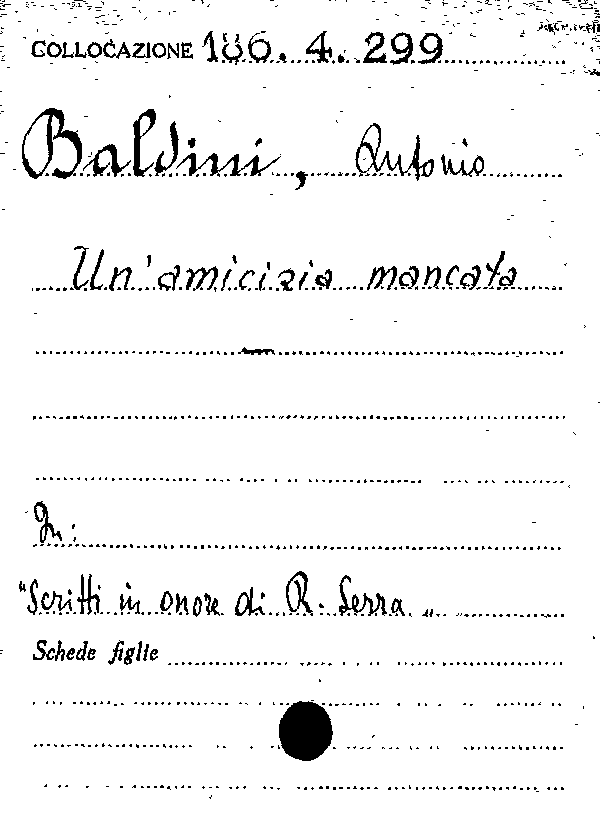 COLLOCAZIONE 186. 4. 299
Baldini, Antonio
Un'amicizia mancata
In:
"Scritti in onore di R. Serra„
Schede figlie